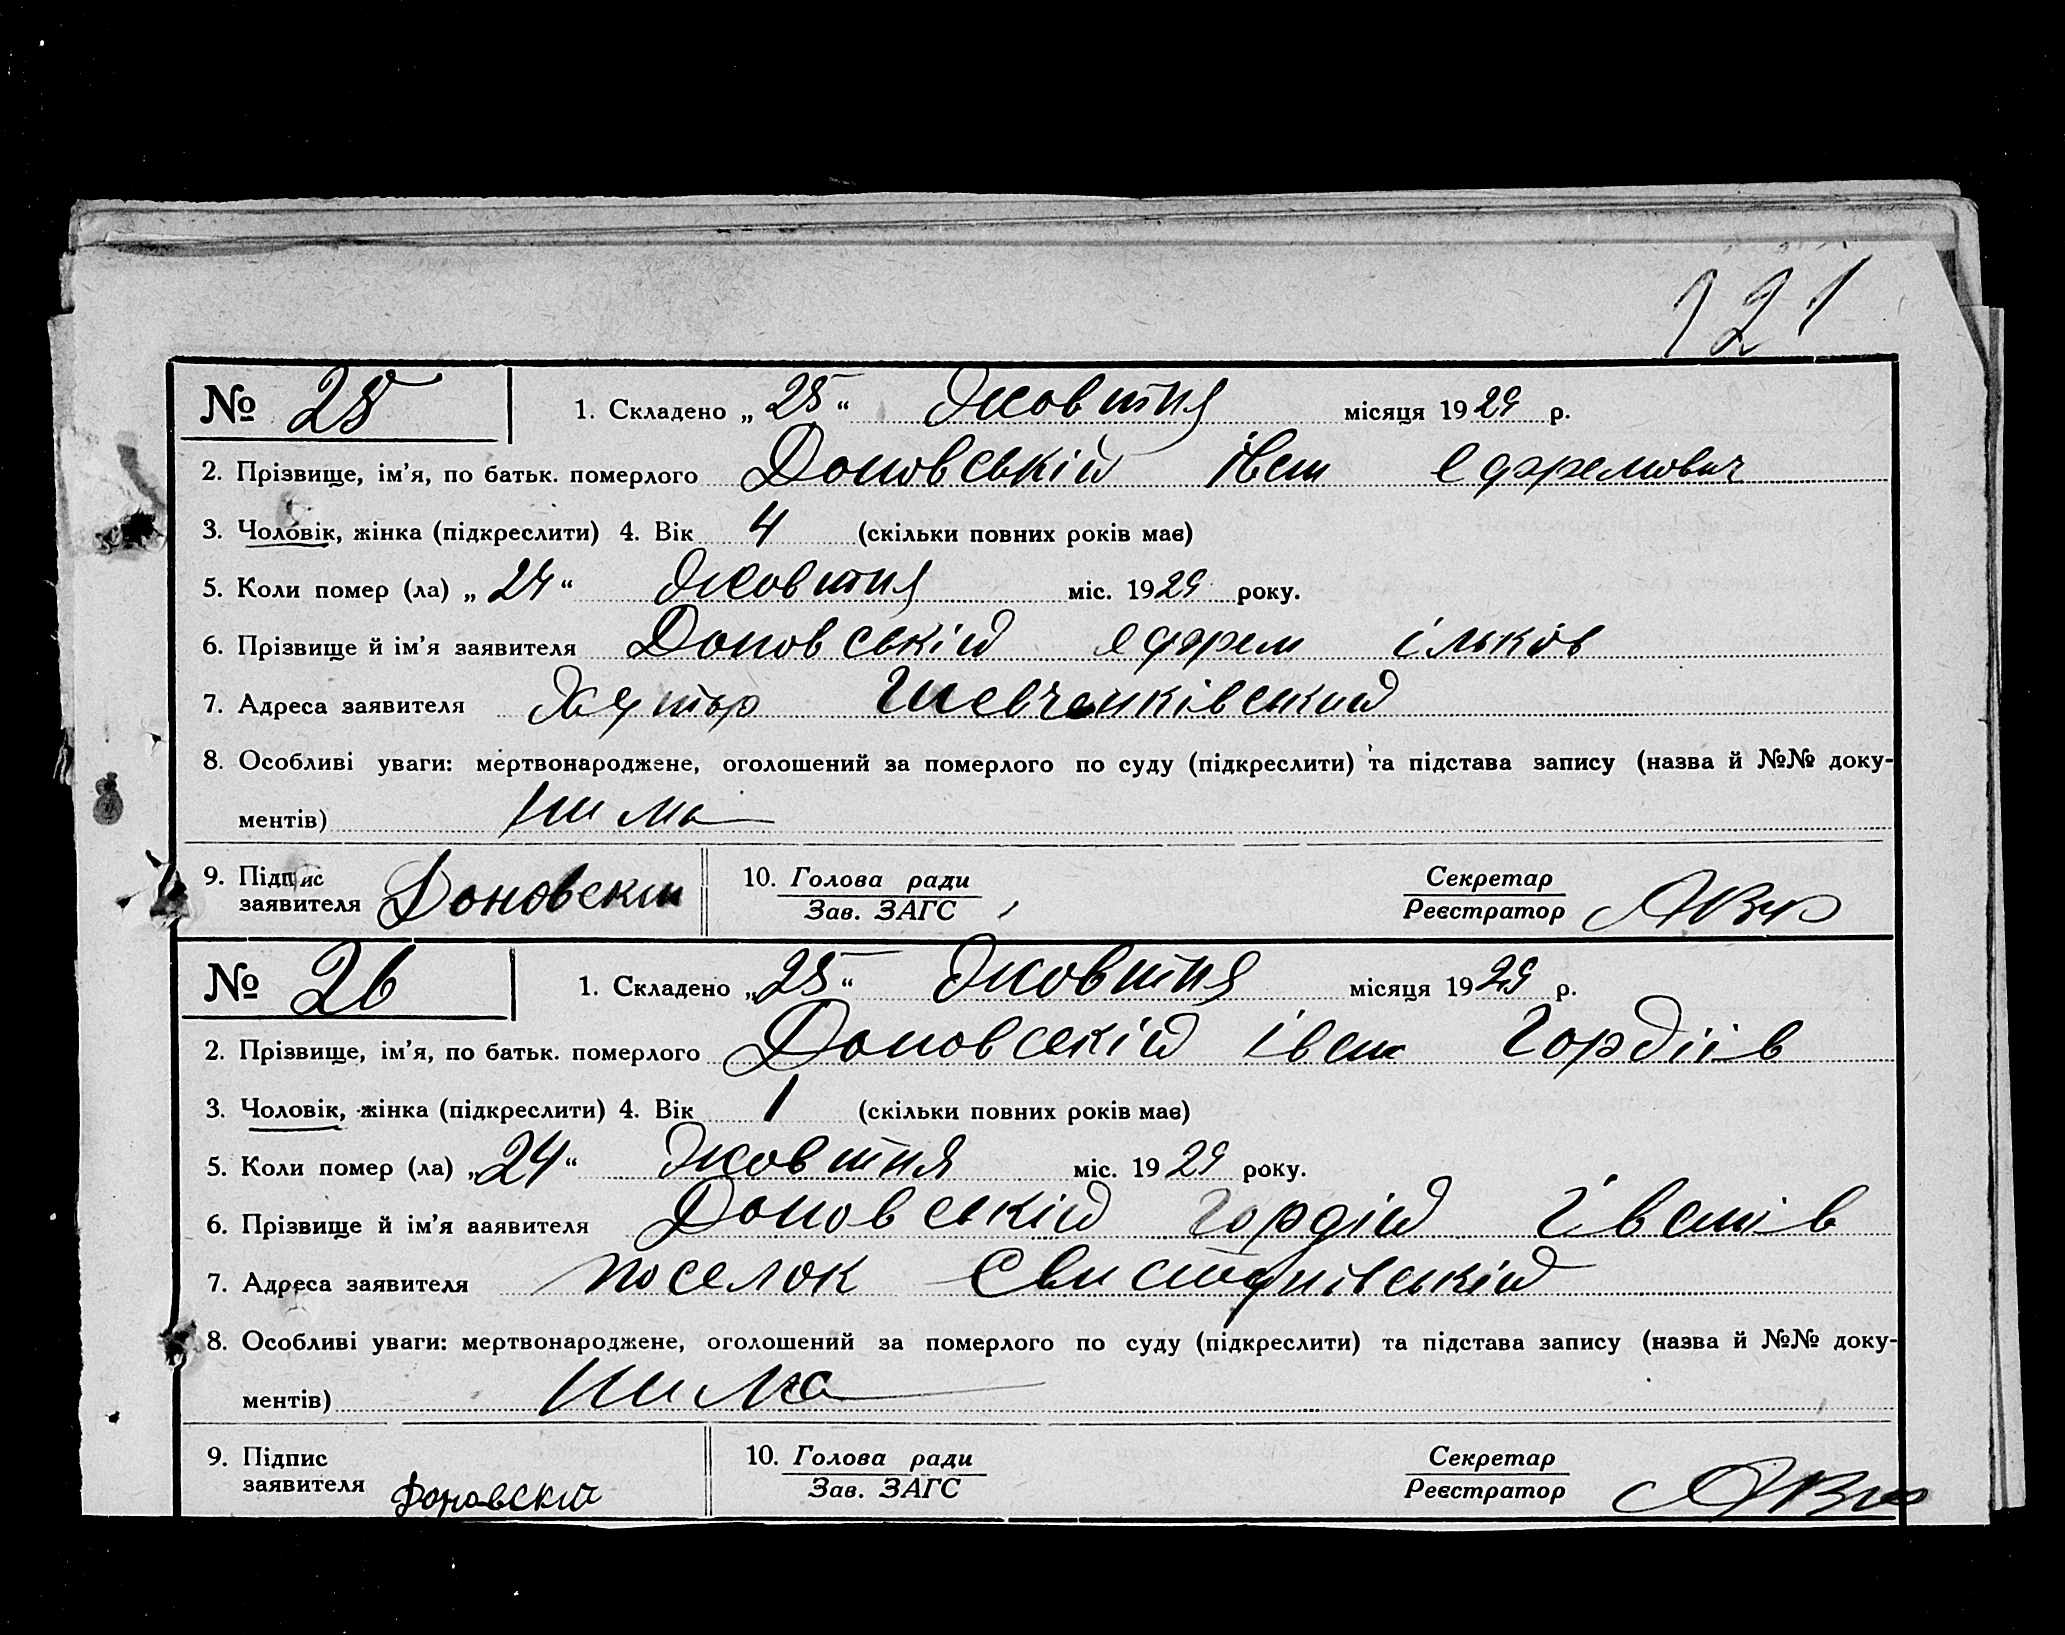 121
№ 25 1. Складено „ 25 “ Жовтня місяця 1929 р.
2. Прізвище, ім’я, по батьк. померлого Доновський Іван Ефремович
3. Чоловік, жінка (підкреслити) 4. Вік 4 (скільки повних років має)
5. Коли помер (ла) „ 24 “ Жовтня міс. 1929 року.
6. Прізвище й ім’я заявителя Доновській Ефрем ільків
7. Адреса заявителя Хутір Шевченківський
8. Особливі уваги: мертвонароджене, оголошений за померлого по суду (підкреслити) та підстава запису (назва й №№ доку-
ментів) нима
9. Підпис 10. Голова ради Секретар
заявителя Доновский Зав. ЗАГС Реєстратор
№ 26 1. Складено „ 25 “ Жовтня місяця 1929 р.
2. Прізвище, ім’я, по батьк. померлого Доновскій Іван Гордіїв
3. Чоловік, жінка (підкреслити) 4. Вік 1 (скільки повних років має)
5. Коли помер (ла) „ 24 “ Жовтня міс. 1929 року.
6. Прізвище й ім’я заявителя Доновській Гордій Іванів
7. Адреса заявителя поселок Свистунівській
8. Особливі уваги: мертвонароджене, оголошений за померлого по суду (підкреслити) та підстава запису (назва й №№ доку-
ментів) нима
9. Підпис 10. Голова ради Секретар
заявителя Доновский Зав. ЗАГС Реєстратор